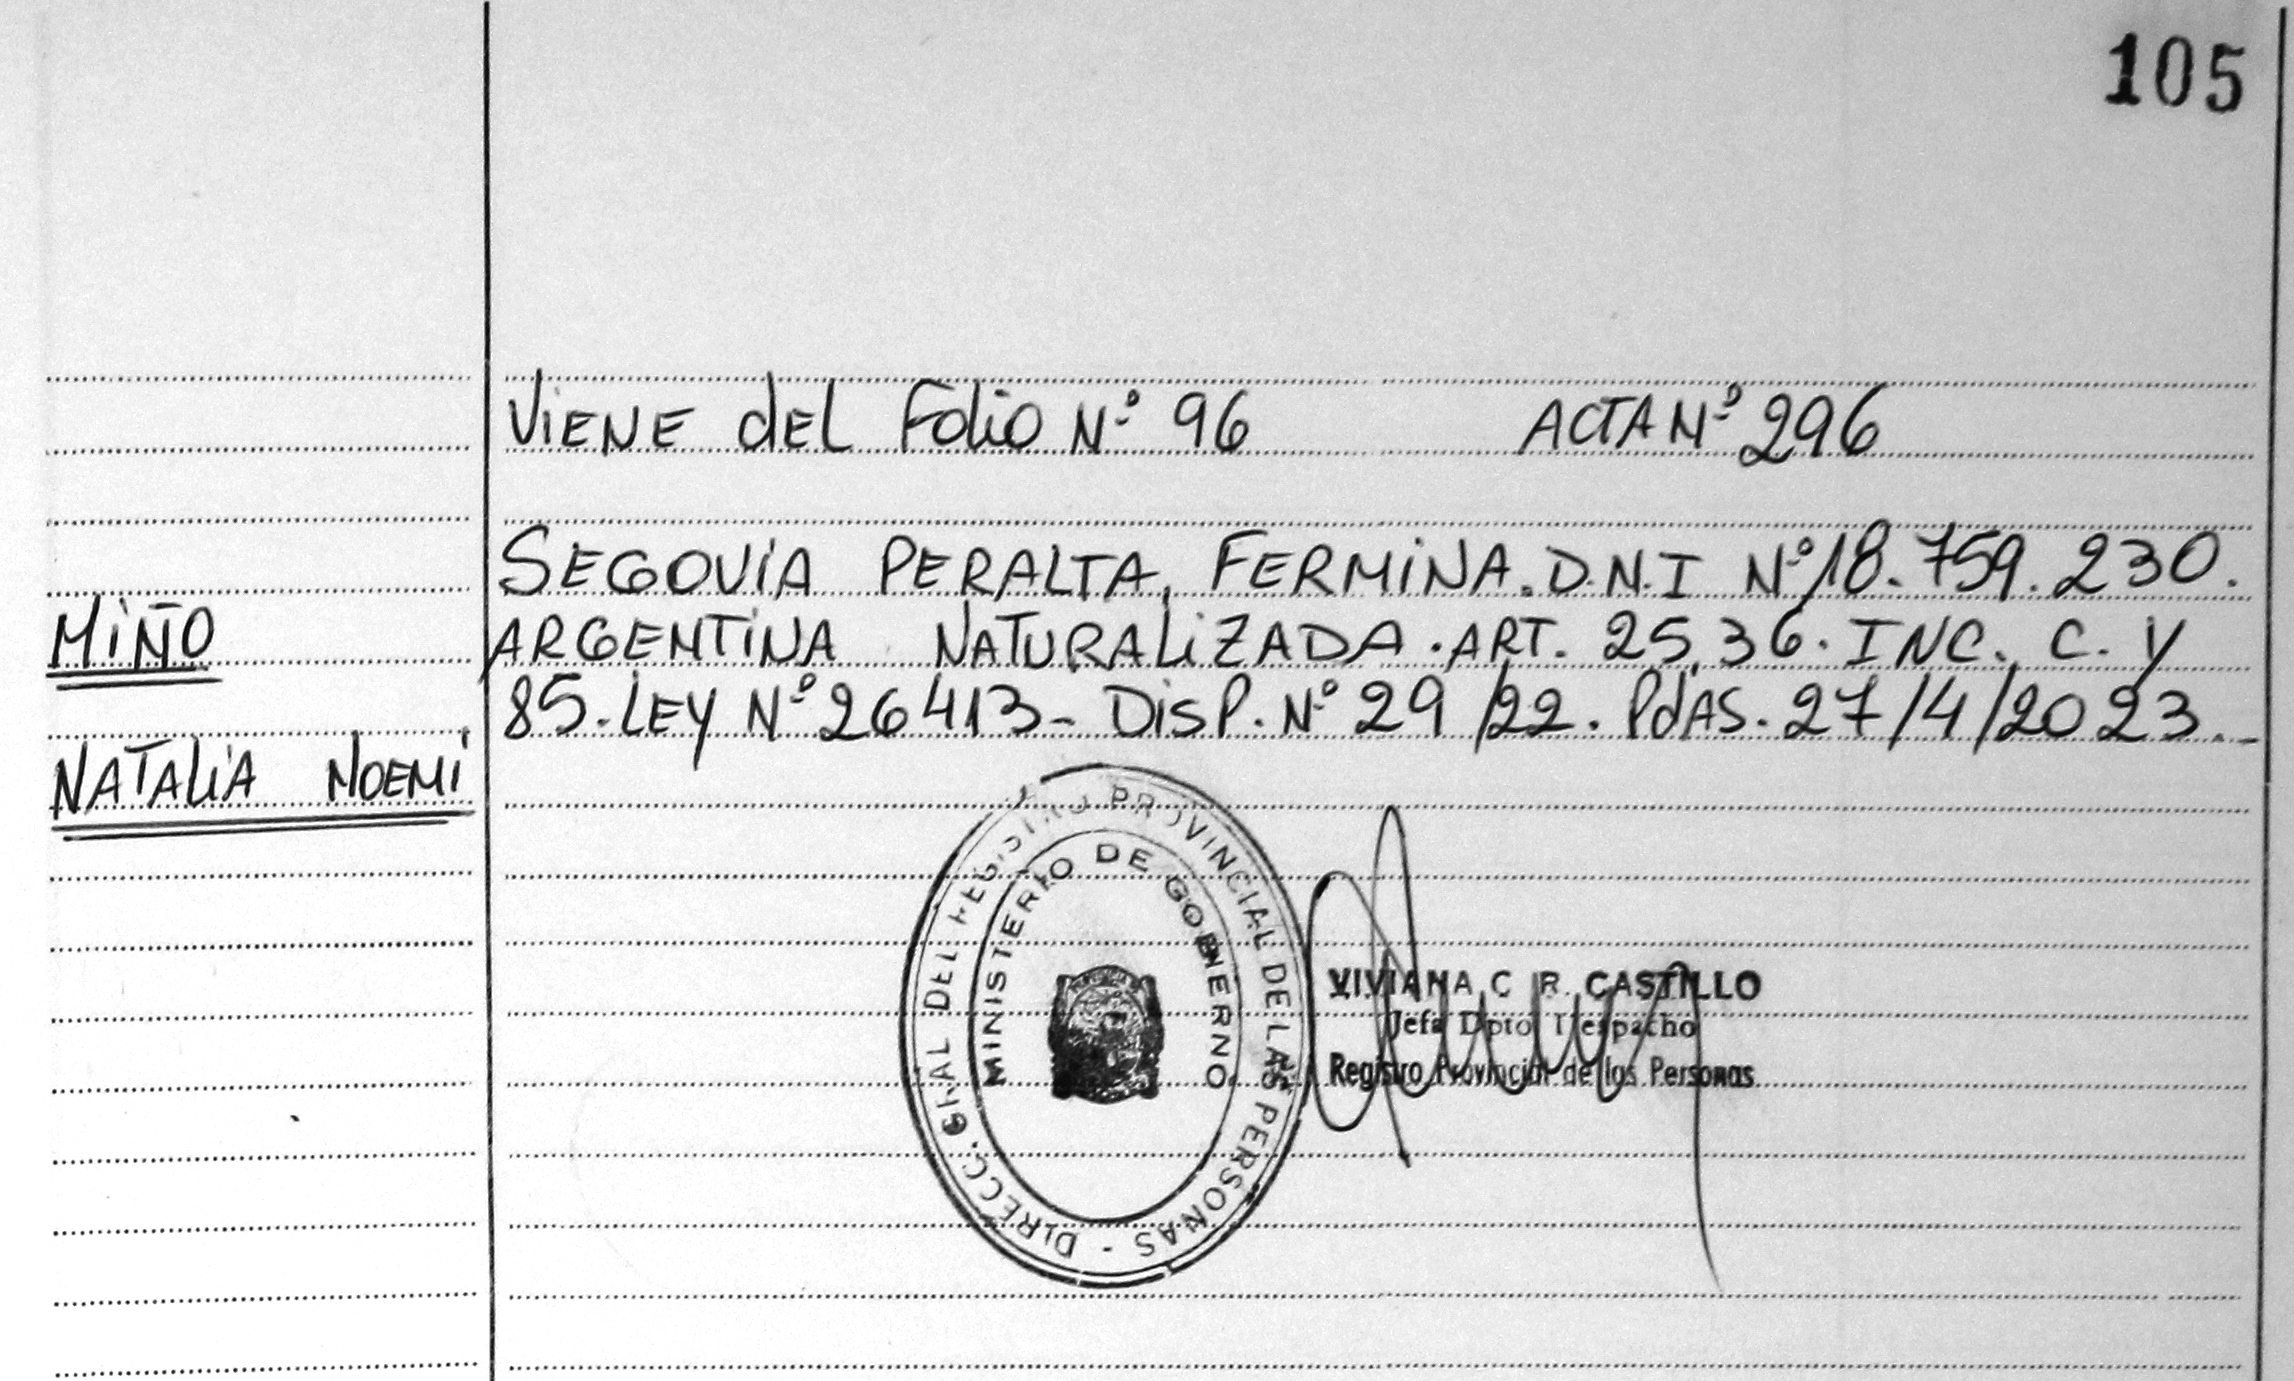 105
Viene del Folio Nº 96 ACTA Nº 296
SEGOVIA PERALTA, FERMINA. D.N.I Nº 18.759.230.
MIÑO
ARGENTINA NATURALIZADA. ART. 25,36. INC. C. Y
85. LEY Nº 26413- DISP. Nº 29/22. PdAS. 27/4/2023.-
NATALIA NOEMI
DIRECC. GRAL DEL REGISTRO PROVINCIAL DE LAS PERSONAS -
MINISTERIO DE GOBIERNO
VIVIANA C R. CASTILLO
Jefa Dpto Despacho
Registro Provincial de los Personas